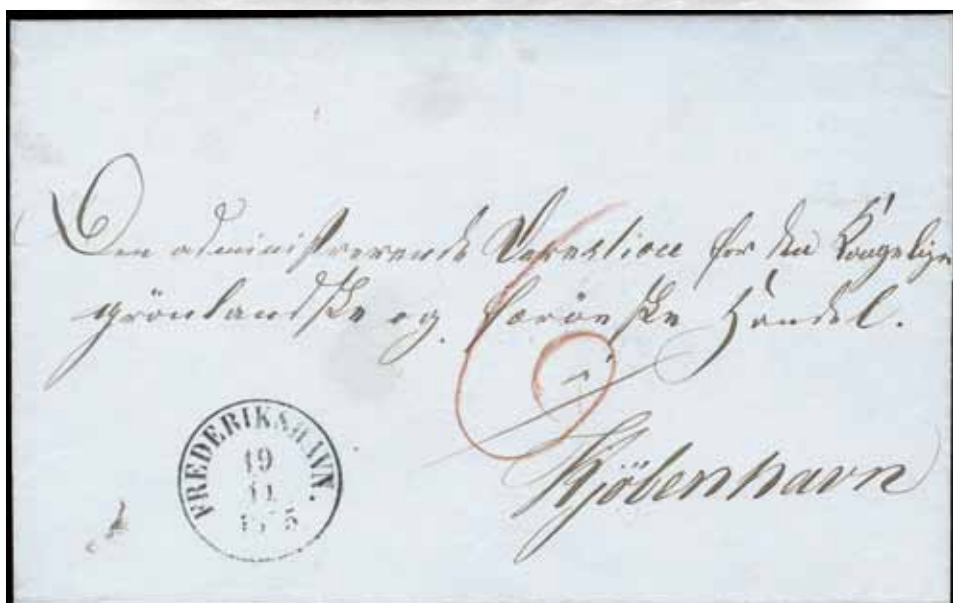 Den administrerende Direktion for den Kongelige
grönlandske og færöeske Handel.
i
Kjöbenhavn
6
FREDERIKSHAVN.
19
11